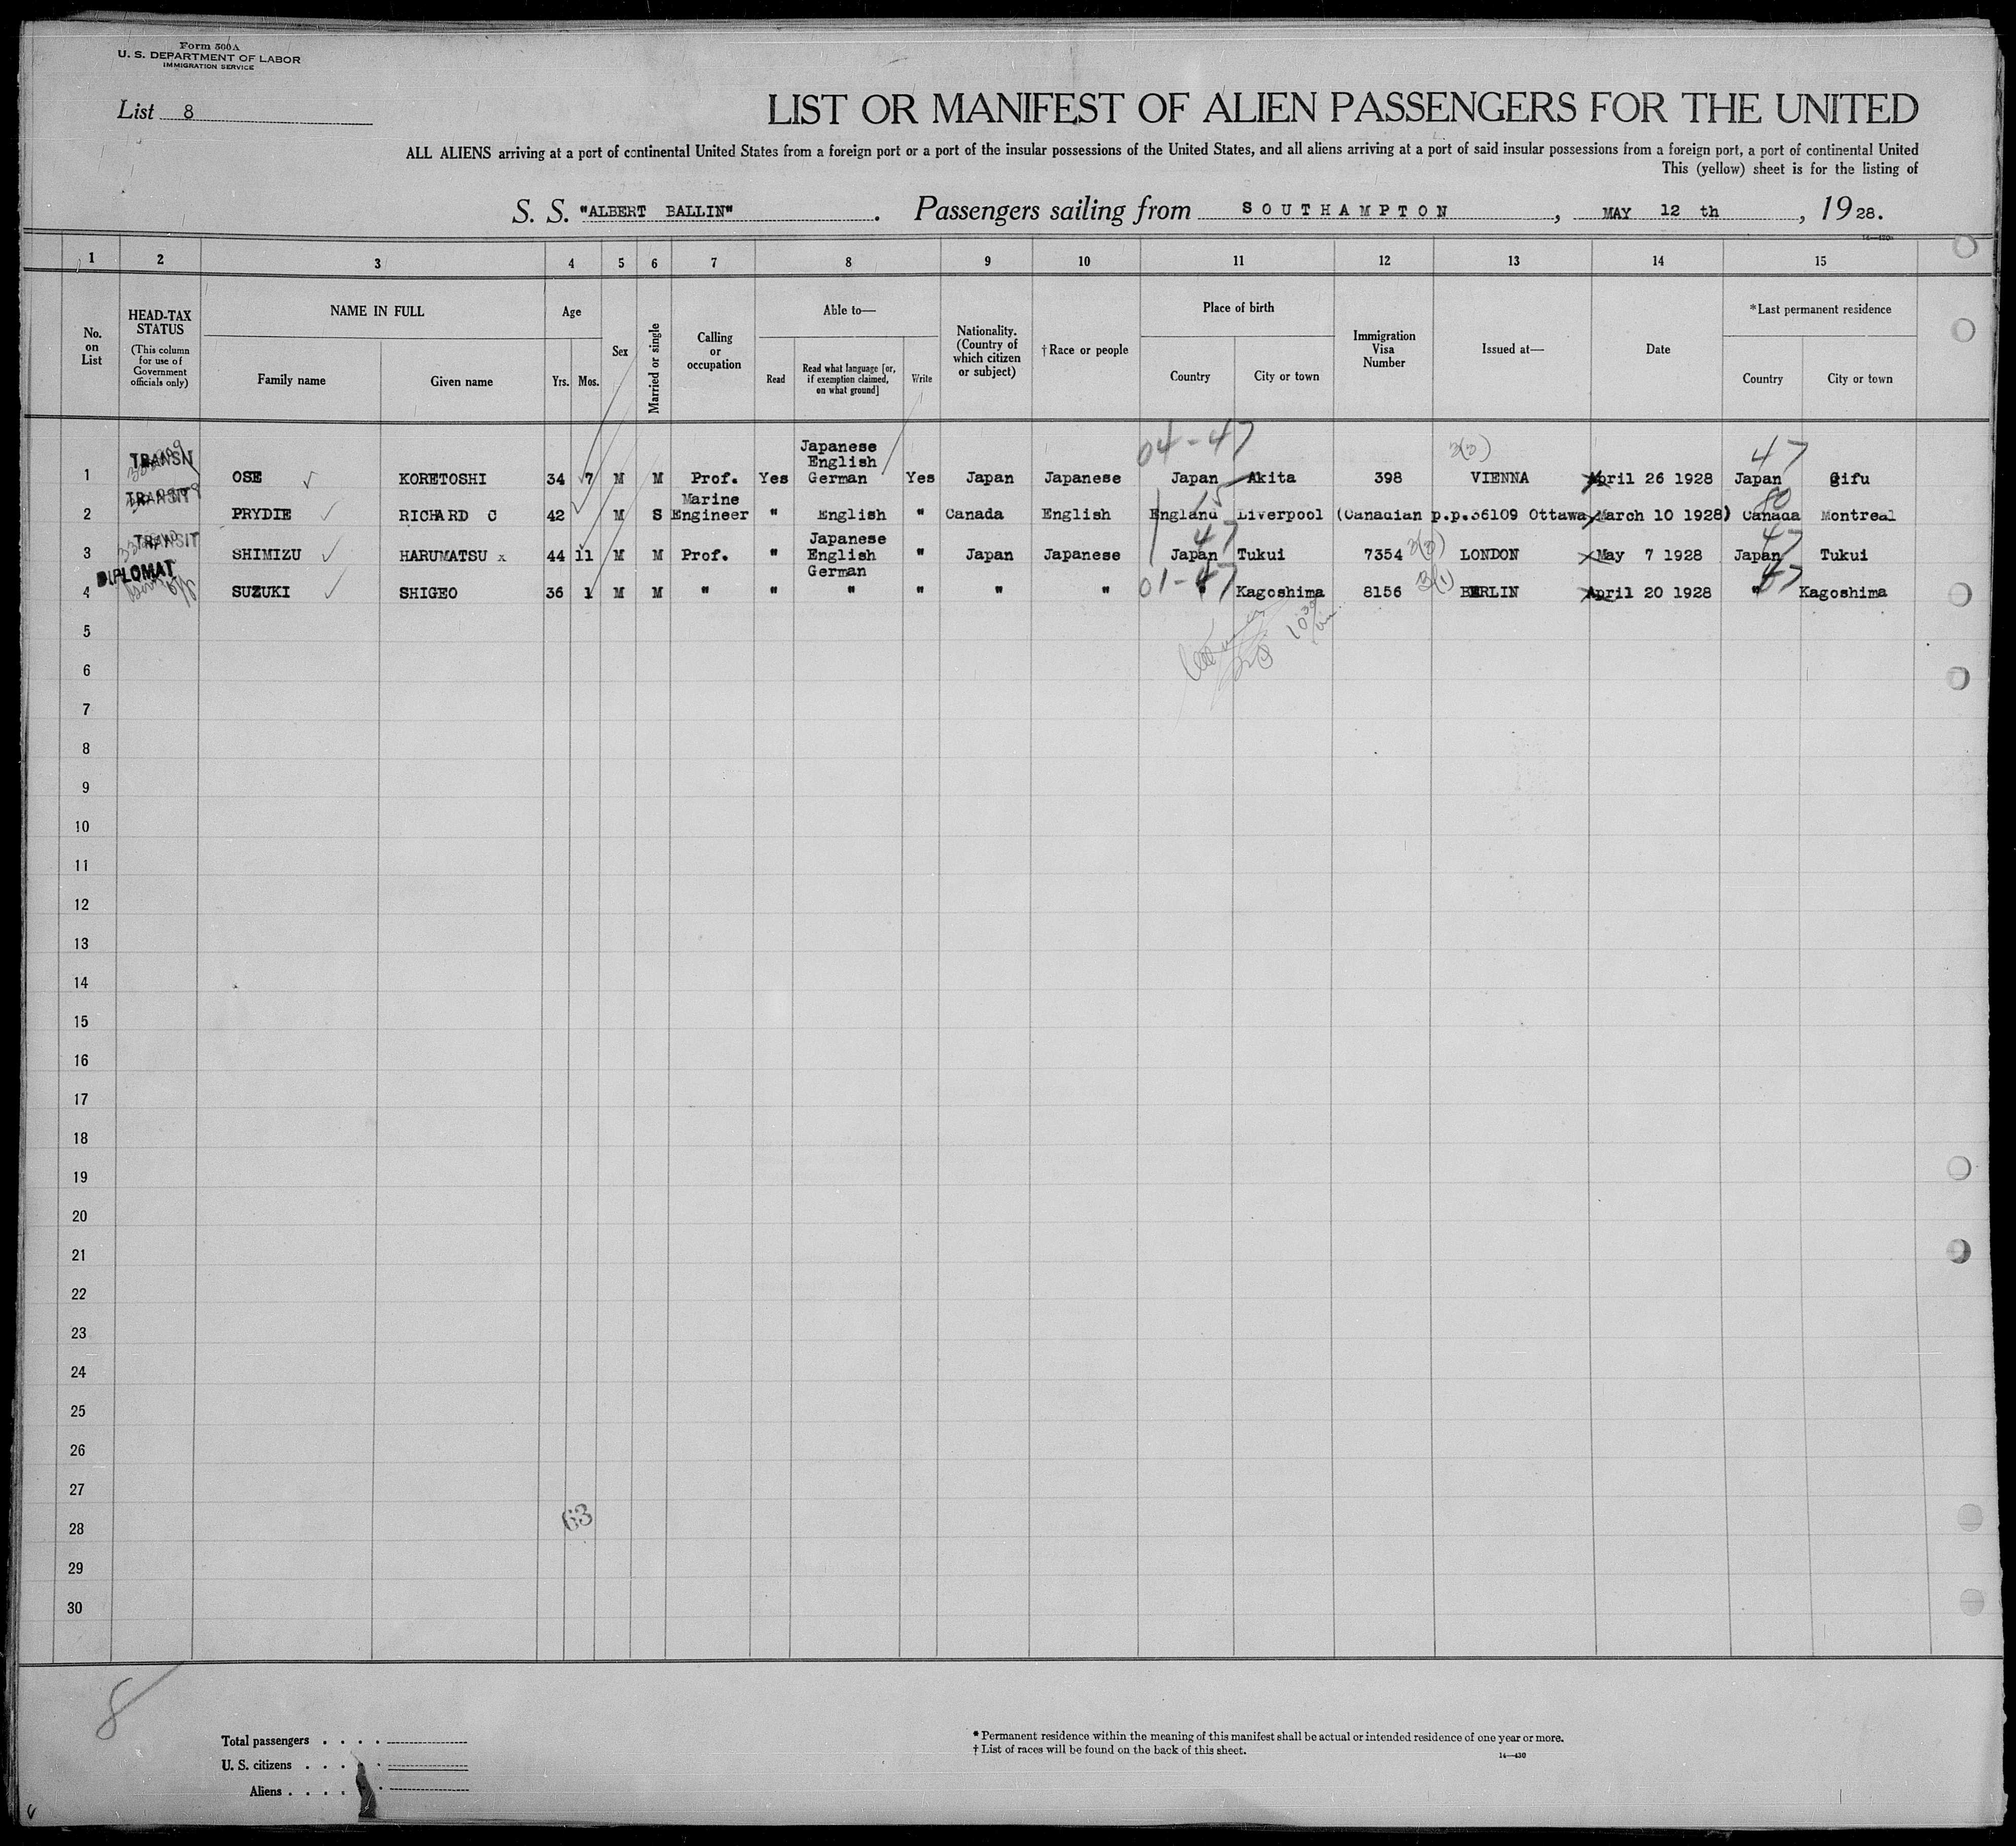 Form 500A
U. S. DEPARTMENT OF LABOR
IMMIGRATION SERVICE
List 8
LIST OR MANIFEST OF ALIEN PASSENGERS FOR THE UNITED
ALL ALIENS arriving at a port of continental United States from a foreign port or a port of the insular possessions of the United States, and all aliens arriving at a port of said insular possessions from a foreign port, a port of continental United
This (yellow) sheet is for the listing of
S. S. "ALBERT BALLIN". Passengers sailing from SOUTHAMPTON, MAY 12 th, 1928.
1 2 3 4 5 6 7 8 9 10 11 12 13 14 15
No. on List
HEAD-TAX STATUS
(This column for use of Government officials only)
NAME IN FULL
Family name
Given name
Age
Yrs. Mos.
Sex
Married or single
Calling or occupation
Able to—
Read
Read what language [or, if exemption claimed, on what ground]
Write
Nationality. (Country of which citizen or subject)
†Race or people
Place of birth
Country
City or town
Immigration Visa Number
Issued at—
Date
*Last permanent residence
Country
City or town
04-47 3(3) 47
1 TRANSIT OSE KORETOSHI 34 7 M M Prof. Yes Japanese English German Yes Japan Japanese Japan Akita 398 VIENNA April 26 1928 Japan Gifu
15 80
2 TRANSIT PRYDIE RICHARD C 42 M S Marine Engineer " English " Canada English England Liverpool (Canadian p.p.36109 Ottawa March 10 1928) Canada Montreal
47 3(3) 47
3 TRANSIT SHIMIZU HARUMATSU x 44 11 M M Prof. " Japanese English German " Japan Japanese Japan Tukui 7354 LONDON May 7 1928 Japan Tukui
01-47 3(1) 47
4 DIPLOMAT SUZUKI SHIGEO 36 1 M M " " " " " " " Kagoshima 8156 BERLIN April 20 1928 " Kagoshima
5
6
7
8
9
10
11
12
13
14
15
16
17
18
19
20
21
22
23
24
25
26
27
28
29
30
63
8
Total passengers . . . .
U. S. citizens . . . .
Aliens . . . .
* Permanent residence within the meaning of this manifest shall be actual or intended residence of one year or more.
† List of races will be found on the back of this sheet.
14—430